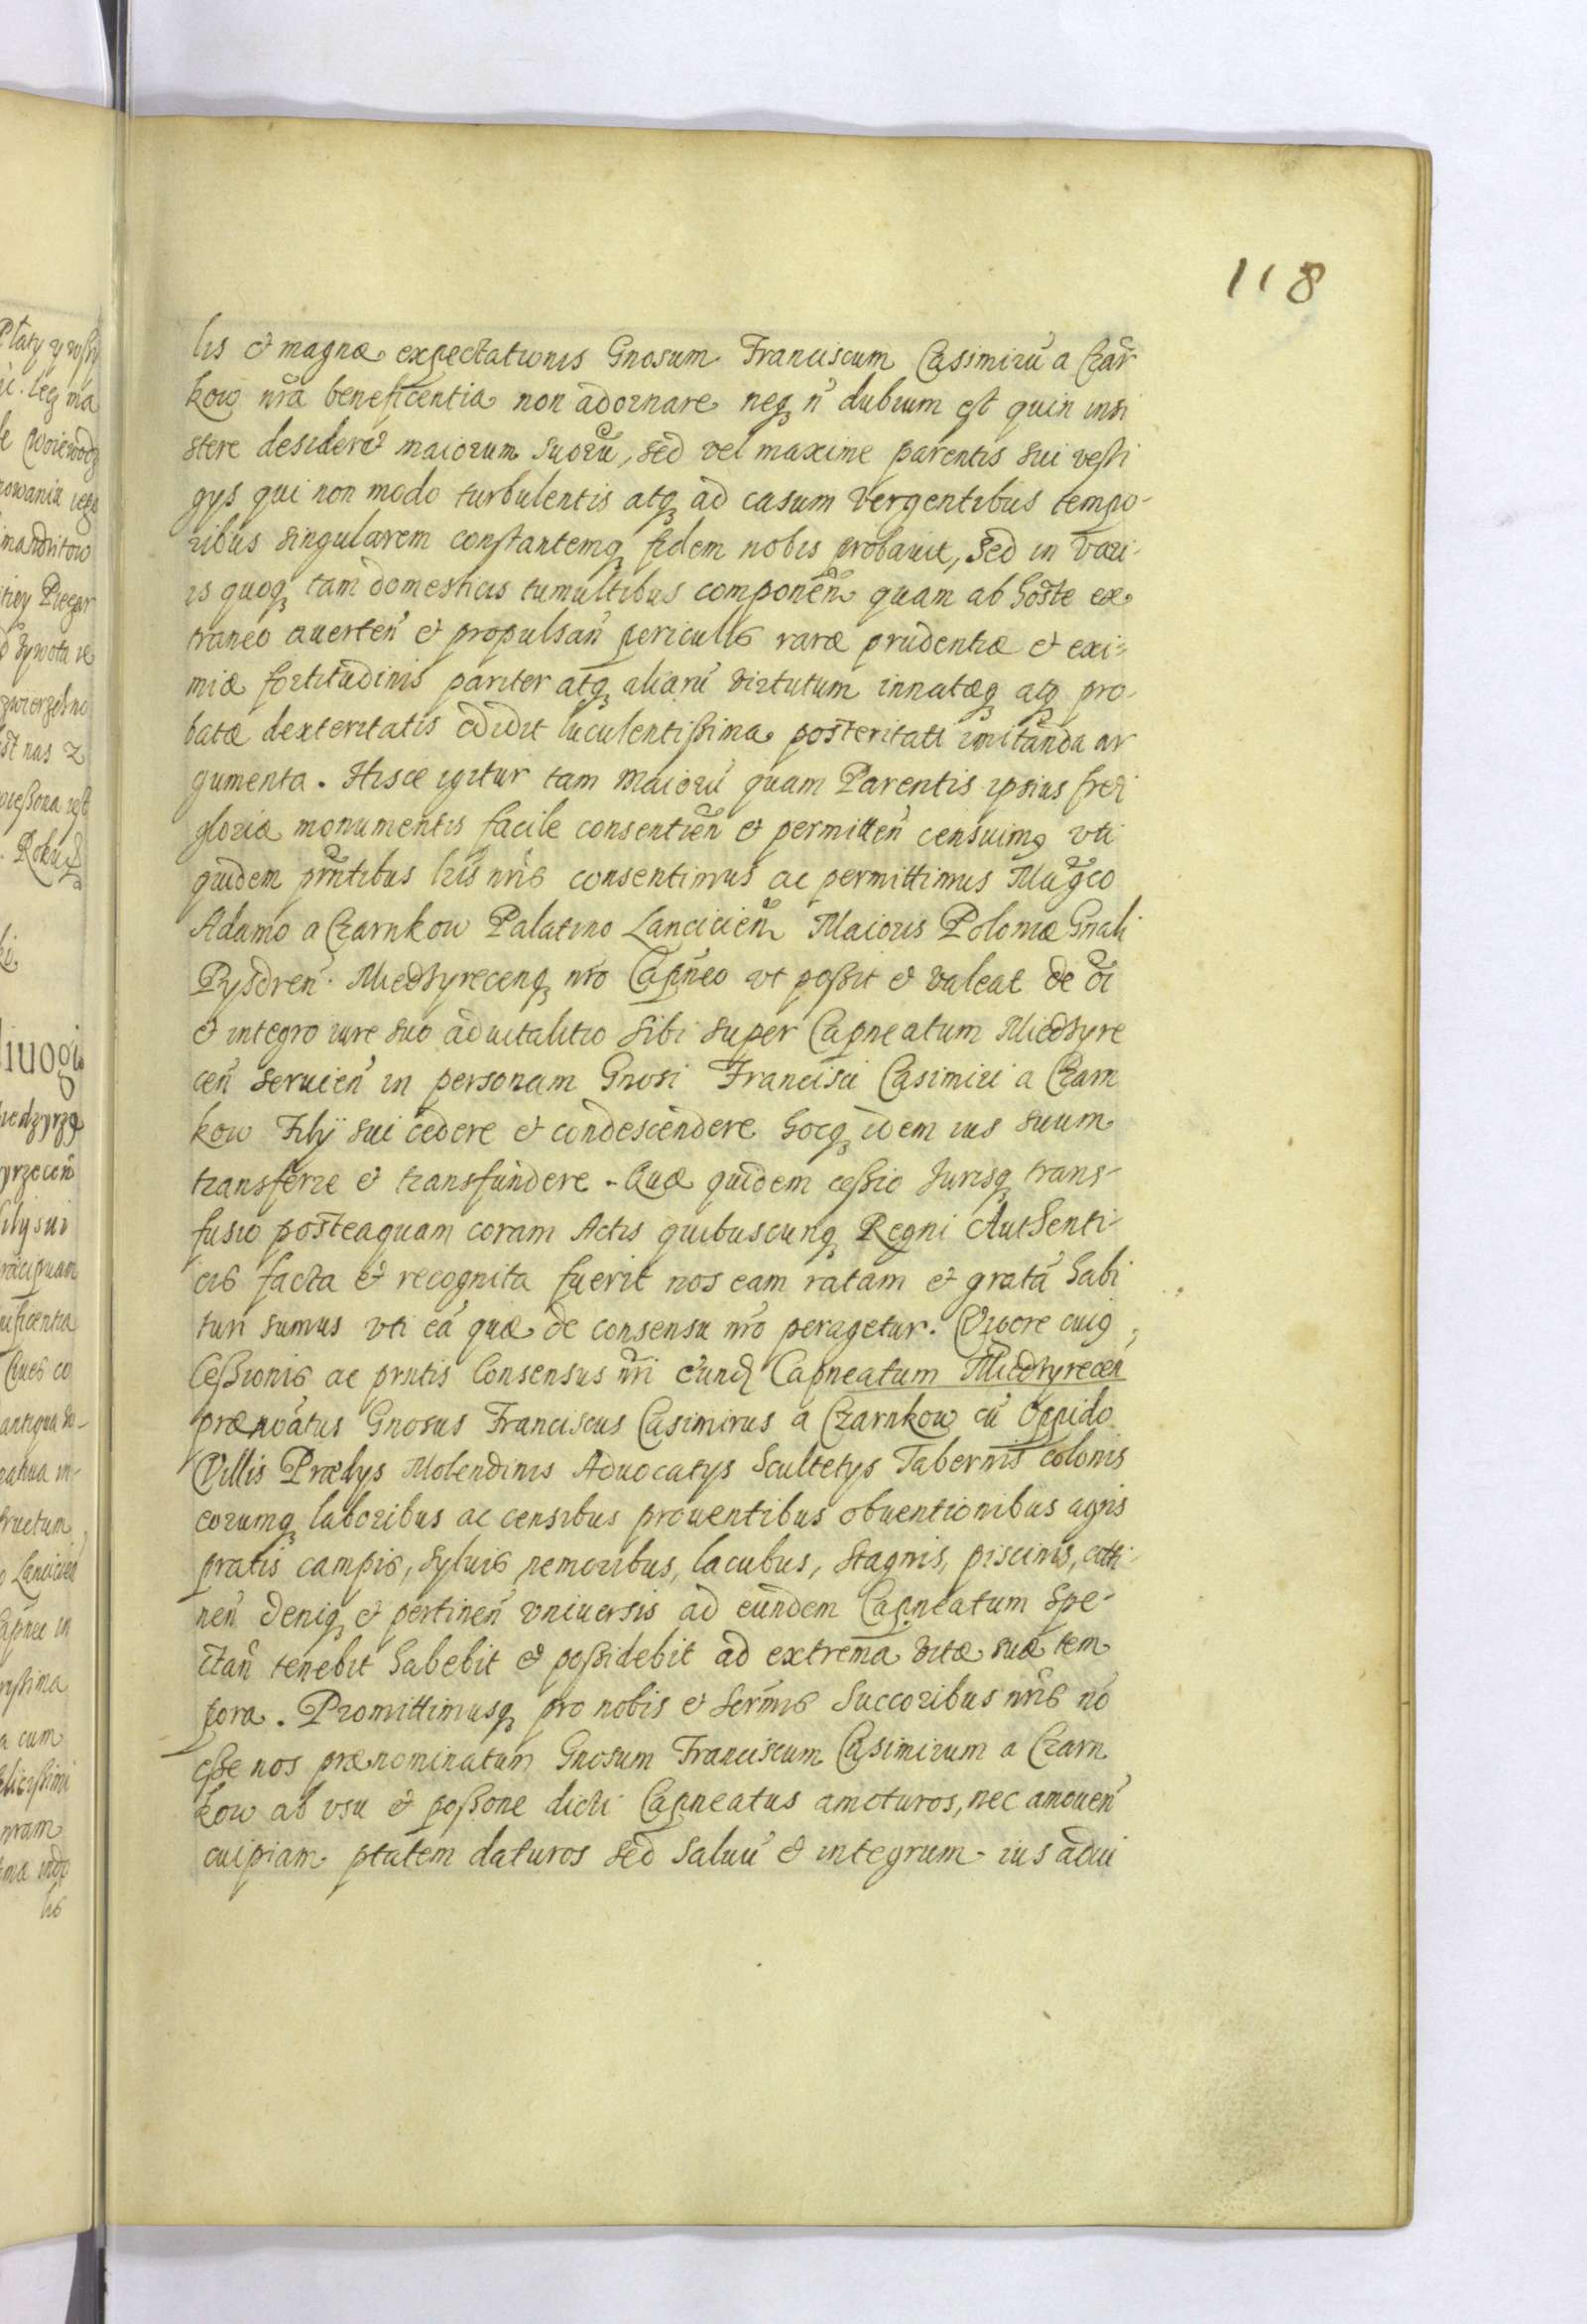 118
lis et magnæ expectationis Gnosum Franciscum Casimirũ a Czar̃
kow nr̃a beneficentia non adornare neq₃ n̄ dubium est quin insi
stere desideret maiorum suorũ, sed vel maxime parentis sui vesti
gys qui non modo turbulentis atq₃ ad casum vergentibus tempo-
ribus singularem constantemq₃ fidem nobis probauit, sed in vari-
is quoq₃ tam domesticis tumultibus componen̄ quam ab hoste ex
traneo auerten̄ et propulsan̄ periculis raræ prudentiæ et exi=
miæ fortitudinis pariter atq₃ aliarũ virtutum innatæq₃ atq₃ pro
batæ dexteritatis edidit luculentißima posteritati imitanda ar
gumenta. Hisce igitur tam maiorũ quam Parentis ipsius freti
gloriæ monumentis facile consentien̄ et permitten̄ censuimꝯ vti
quidem prñtibus lr̃is nr̃is consentimus ac permittimus Mag̃co
Adamo a Czarnkow Palatino Lancicien̄ Maioris Poloniæ Gnali
Pysdren̄. Miedzyrecenq₃ nr̃o Capñeo vt poßit et valeat de oĩ
et integro iure suo aduitalitio sibi super Capneatum Miedzyre
cen̄ seruien̄ in personam Gnosi Francisci Casimiri a Czarn
kow Filÿ sui cedere et condescendere hocq₃ idem ius suum
transferre et transfundere. Quæ quidem ceßio Jurisq₃ trans-
fusio posteaquam coram Actis quibuscunq₃ Regni Authenti-
cis facta et recognita fuerit nos eam ratam et gratã habi
turi sumus vti eã quæ de consensu nr̃o peragetur. Vigore cuiꝯ
Ceßionis ac prñtis Consensus nr̃i eund Capneatum Miedzyrecen̄
prænoãtus Gnosus Franciscus Casimirus a Czarnkow cũ Oppido
Villis Prædys Molendinis Aduocatys Scultetys Tabernis colonis
eorumq₃ laboribus ac censibus prouentibus obuentionibus agris
pratis campis, syluis nemoribus, lacubus, stagnis, piscinis, atti-
nen̄ deniq₃ et pertinen̄ vniuersis ad eundem Capneatum spe-
ctan̄ tenebit habebit et poßidebit ad extrema vitæ suæ tem
pora. Promittimusq₃ pro nobis et Serm̃is Succoribus nr̃is nõ
eße nos prænominatum Gnosum Franciscum Casimirum a Czarn
kow ab vsu et poßone dicti Capneatus amoturos, nec amouen̄
cuipiam ptatem daturos sed saluũ et integrum ius adui